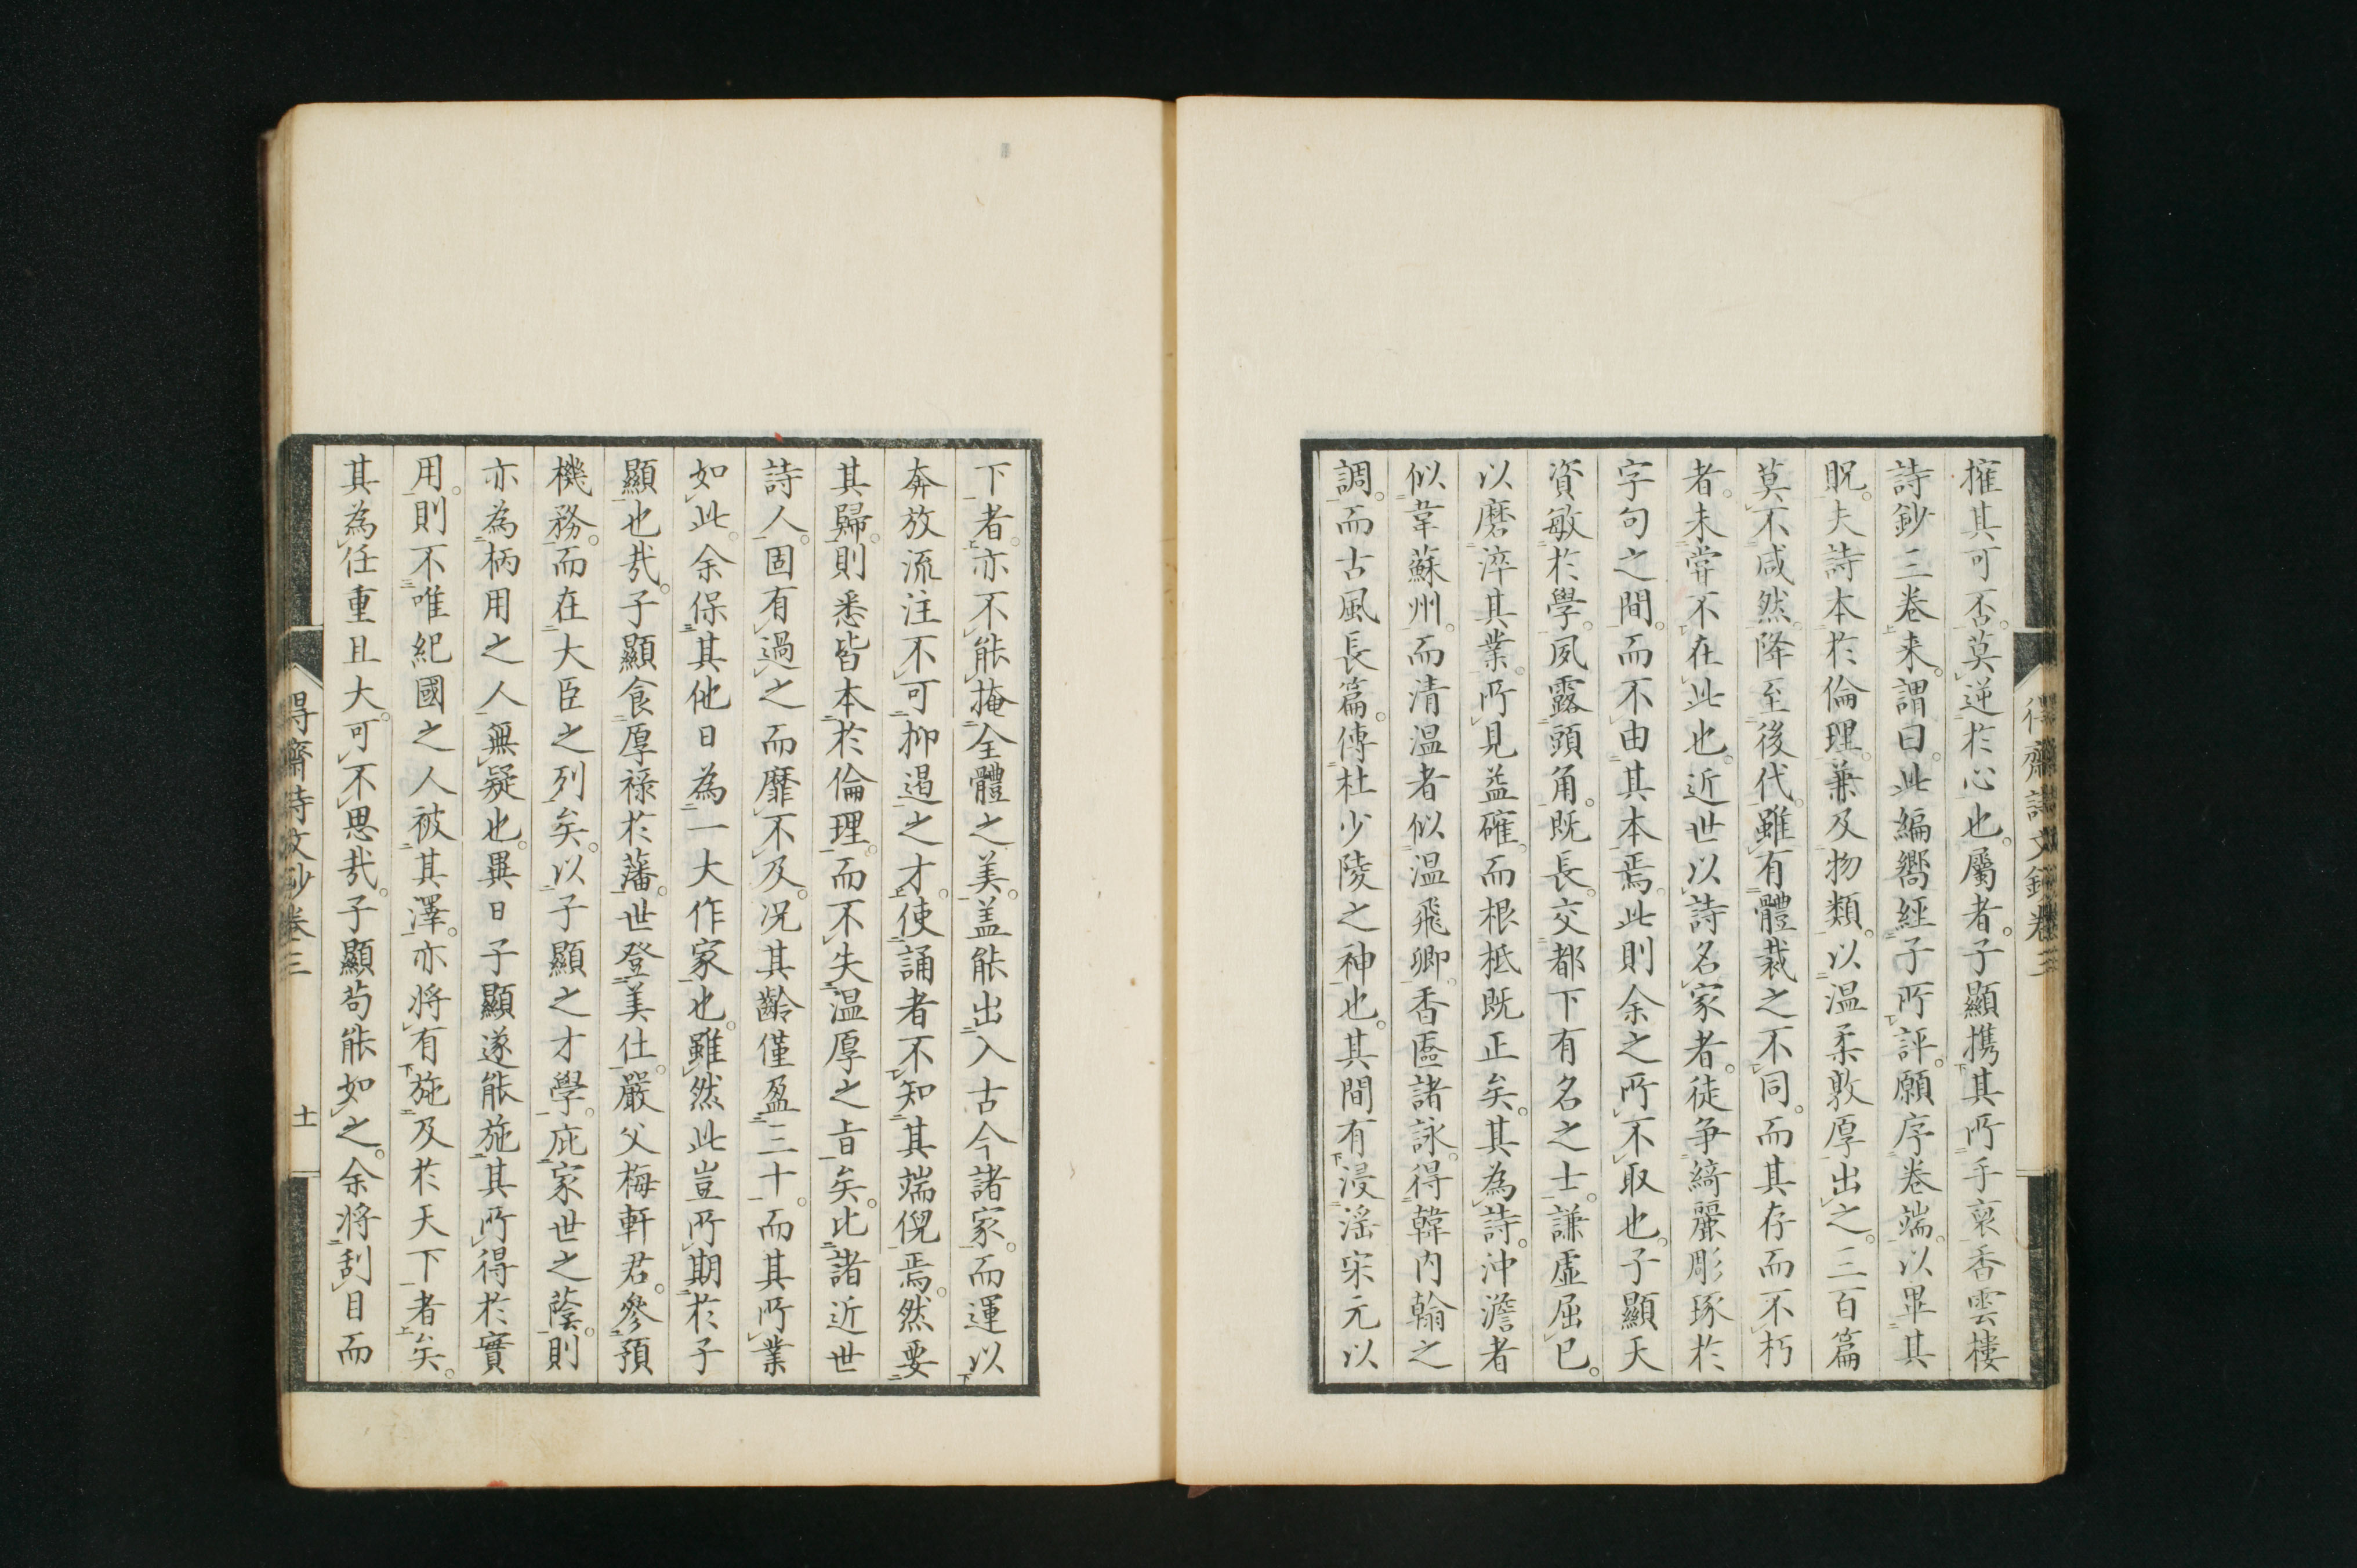 搉其可否。莫逆於心也。屬者。子顯携其所手裒香雲樓
詩鈔三卷来。謂曰。此編嚮經子所評。願序卷端。以畀其
貺。夫詩本於倫理。兼及物類。以温柔敦厚出之。三百篇
莫不咸然。降至後代。雖有體裁之不同。而其存而不朽
者。未甞不在此也。近世以詩名家者。徒争綺麗彫琢於
字句之間。而不由其本焉。此則余之所不取也。子顯天
資敏於學。夙露頭角。既長。交都下有名之士。謙虚屈己。
以磨淬其業。所見益確。而根柢既正矣。其為詩。沖澹者
似韋蘇州。而清温者似温飛卿。香匳諸詠。得韓内翰之
調。而古風長篇。傳杜少陵之神也。其間有浸淫宋元以
下者。亦不能掩全體之美。盖能出入古今諸家。而運以
奔放流注不可抑遏之才。使誦者不知其端倪焉。然要
其歸。則悉皆本於倫理。而不失温厚之旨矣。比諸近世
詩人。固有過之而靡不及。况其齡僅盈三十。而其所業
如此。余保其他日為一大作家也。雖然此豈所期於子
顯也㢤。子顯食厚祿於藩。世登美仕。嚴父梅軒君。參預
機務。而在大臣之列矣。以子顯之才學。庇家世之蔭。則
亦為柄用之人無疑也。異日子顯遂能施其所得於實
用。則不唯紀國之人被其澤。亦将有施及於天下者矣。
其為任重且大。可不思㢤。子顯苟能如之。余将刮目而
得齋詩文鈔卷三
十一